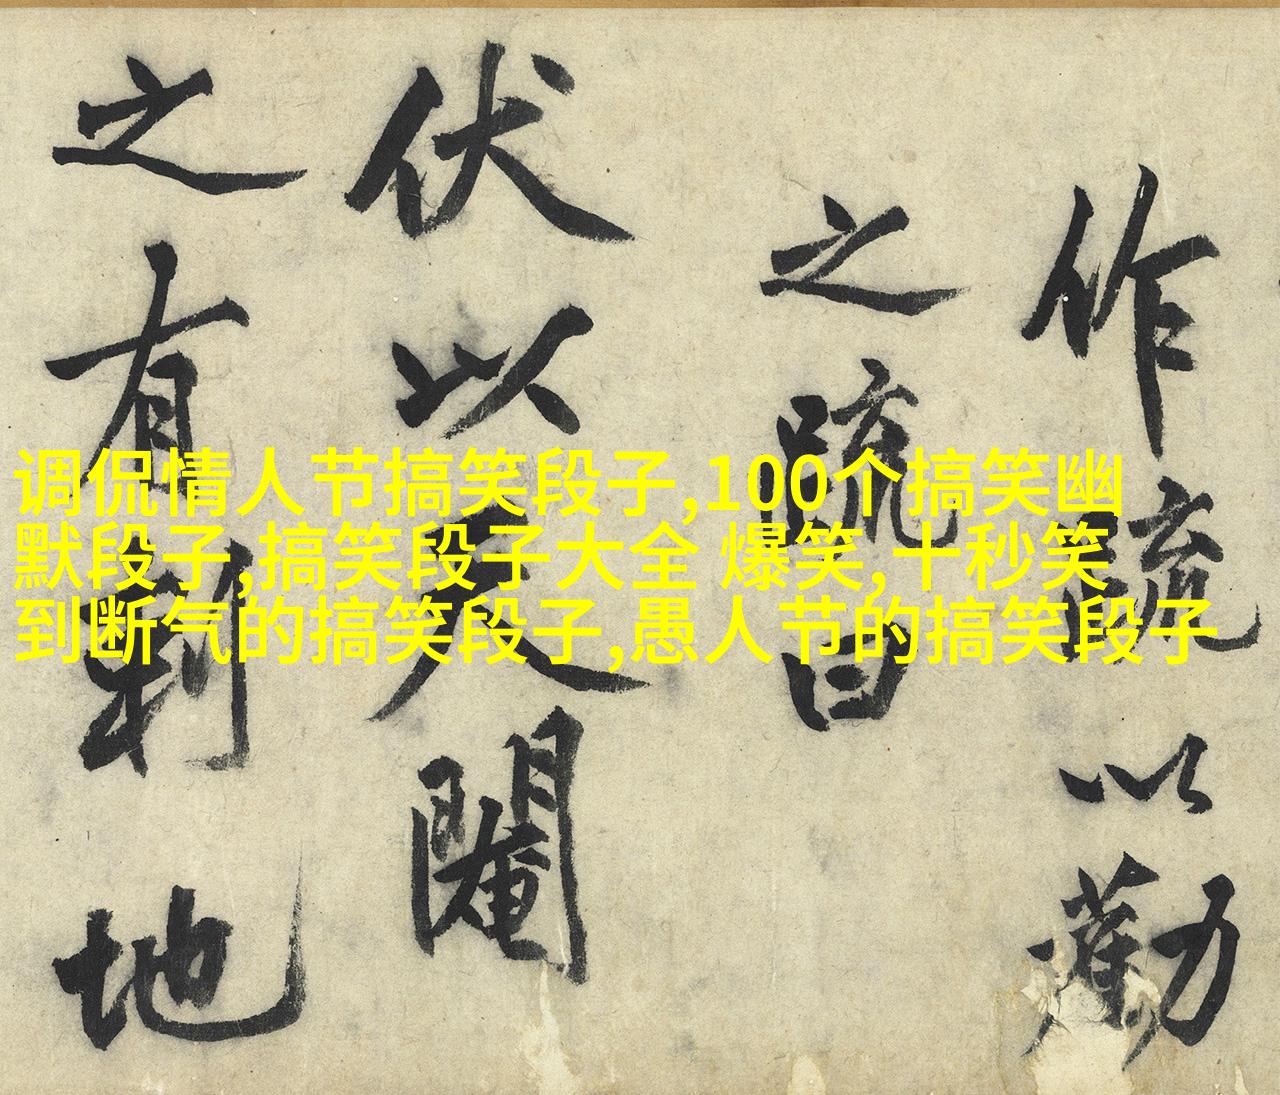 作疏以勸
之疏曰
伏以天閹
之有刹地
调侃情人节搞笑段子,100个搞笑幽
默段子,搞笑段子大全 爆笑,十秒笑
到断气的搞笑段子,愚人节的搞笑段子